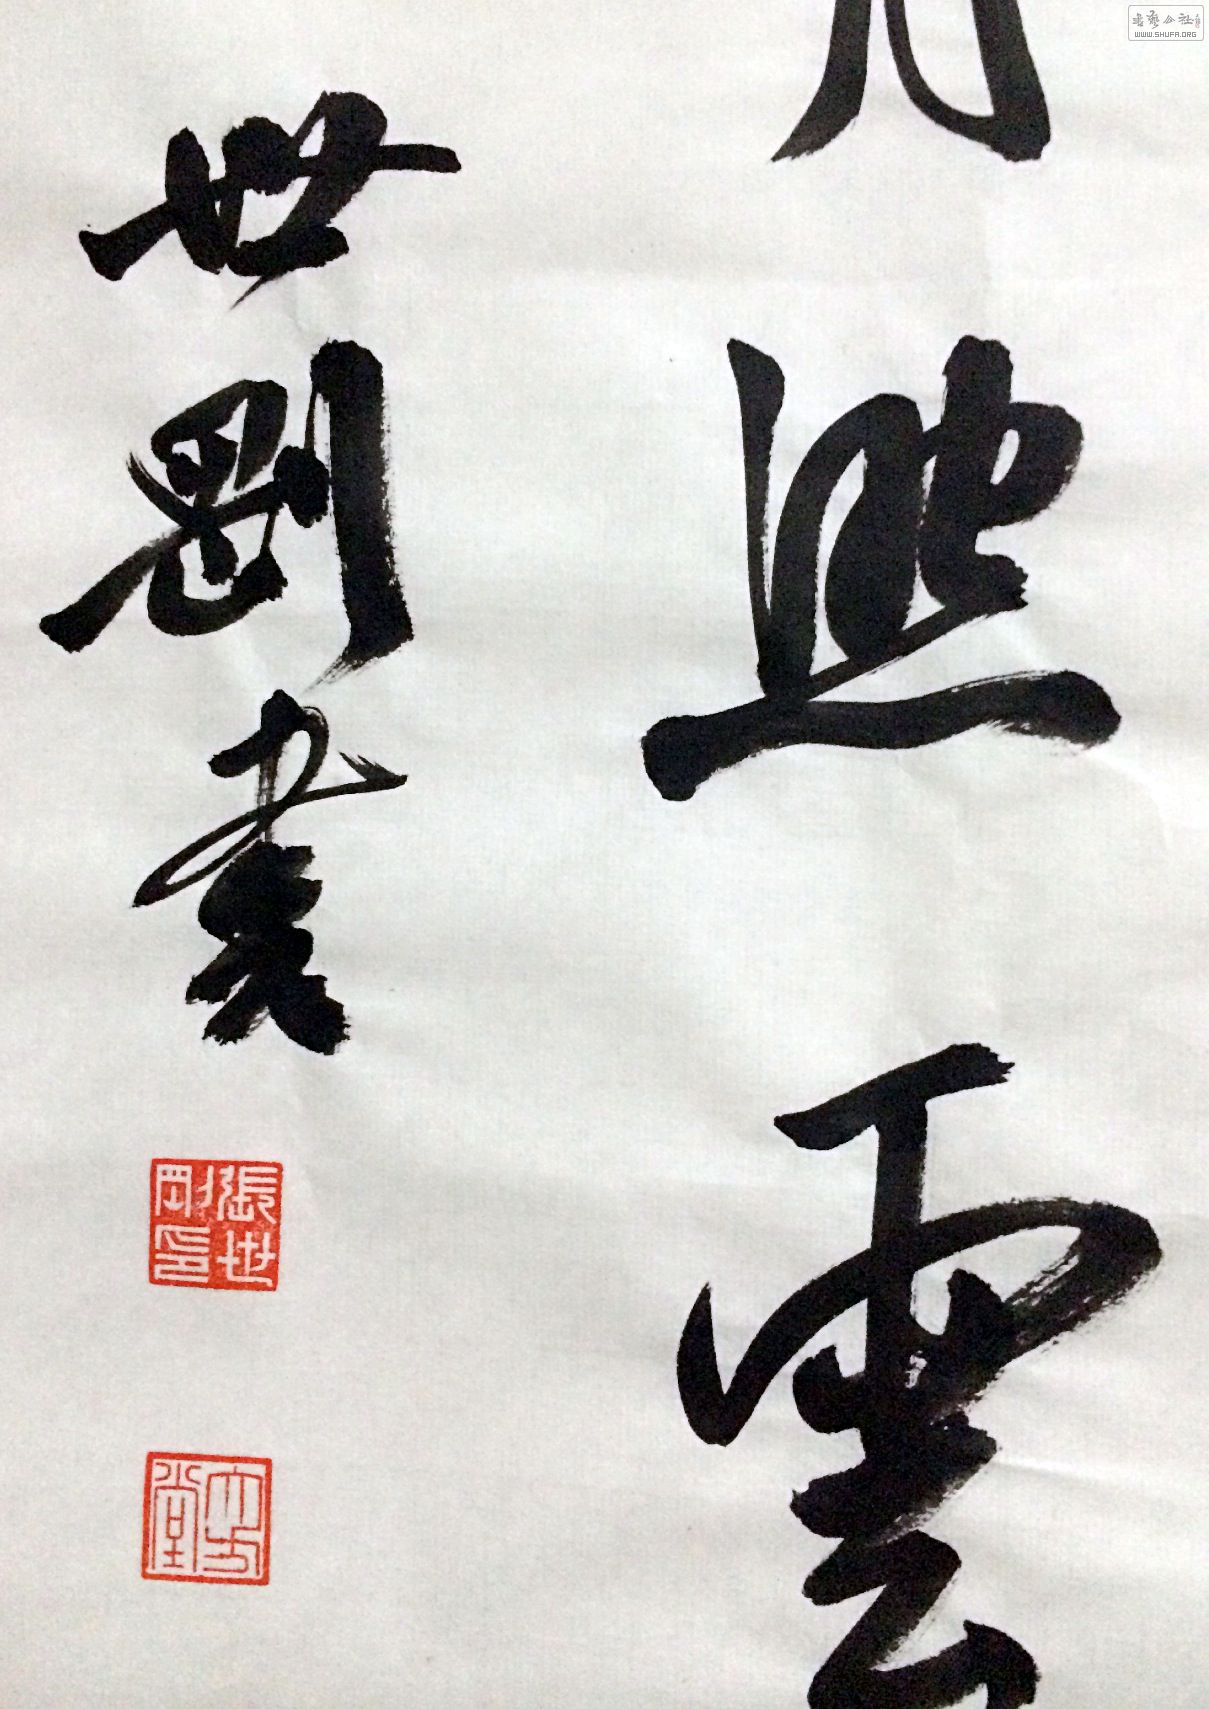 照雲
世剛書
張世剛印
大方堂
書藝公社
WWW.SHUFA.ORG